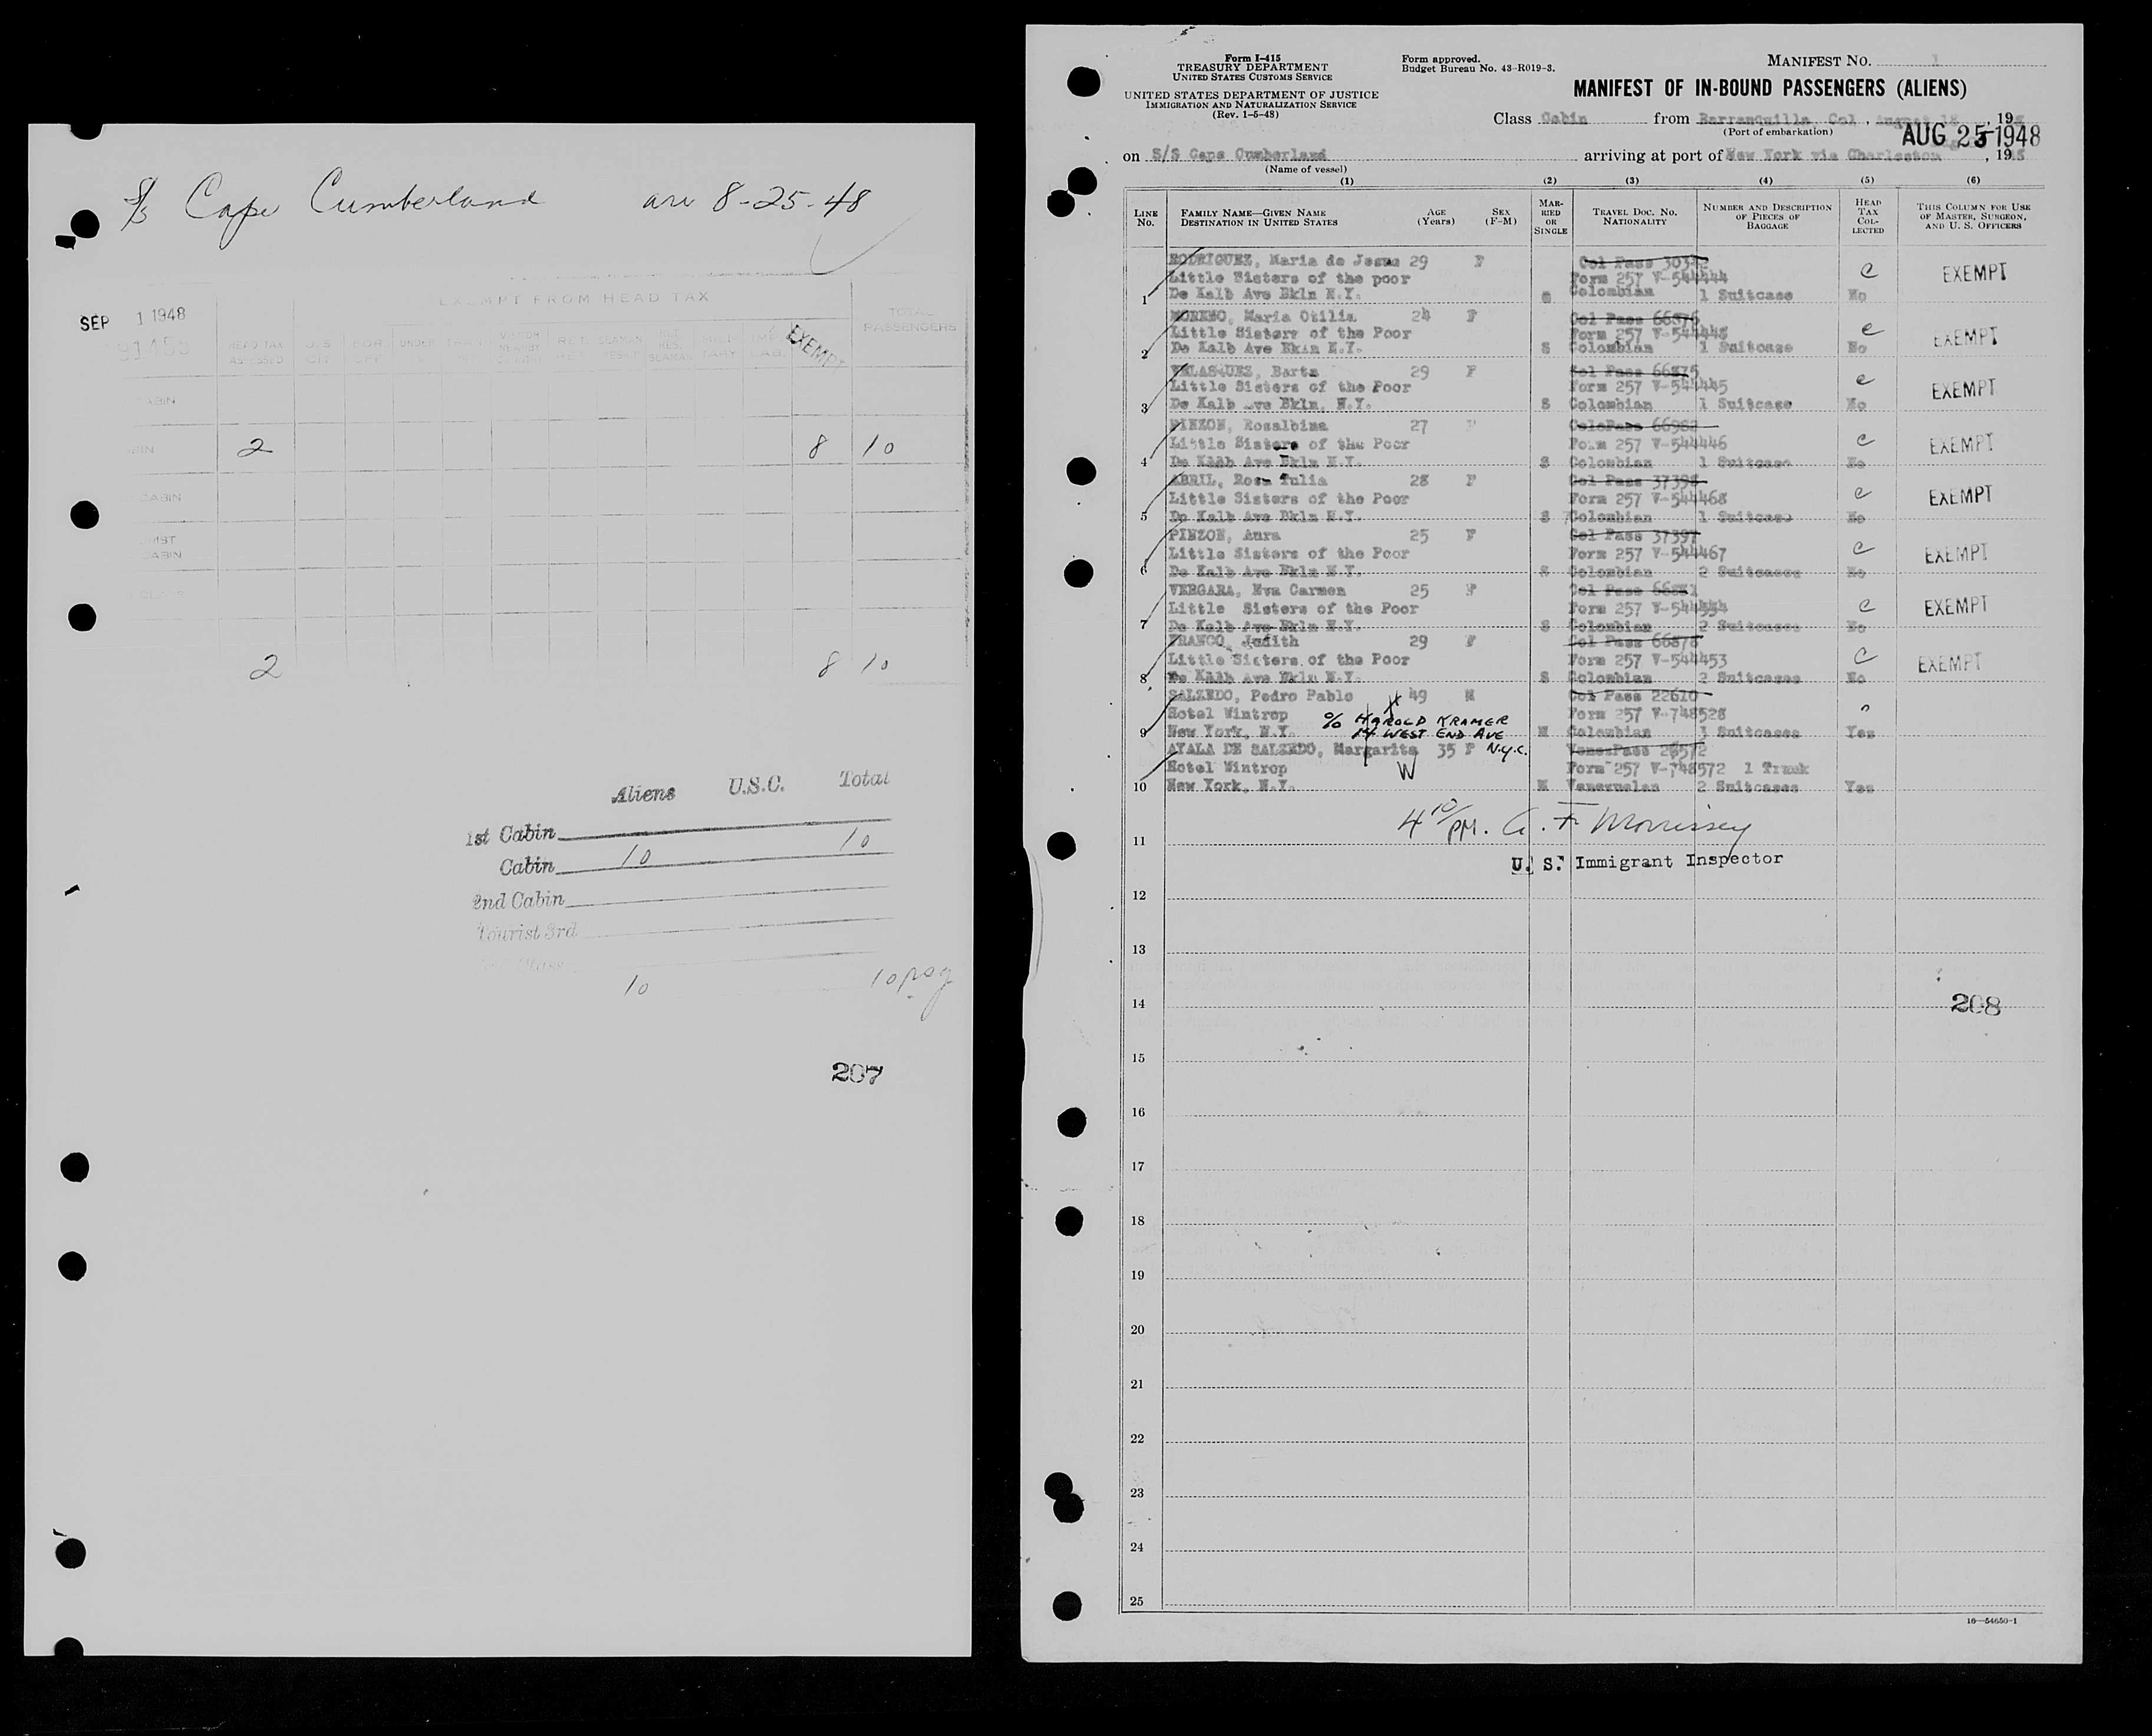 S/S Cape Cumberland arr 8-25-48
EXEMPT FROM HEAD TAX
SEP 1 1948
TOTAL PASSENGERS
HEAD TAX ASSESSED
UNDER
EXEMPT
CABIN
2 8 10
CABIN
CABIN
2 8 10
Aliens U.S.C. Total
1st Cabin
Cabin 10 10
2nd Cabin
Tourist 3rd
10 10 psg
207
Form I-415
TREASURY DEPARTMENT
UNITED STATES CUSTOMS SERVICE
UNITED STATES DEPARTMENT OF JUSTICE
IMMIGRATION AND NATURALIZATION SERVICE
(Rev. 1-5-48)
Form approved.
Budget Bureau No. 43-R019-3.
MANIFEST NO. 1
MANIFEST OF IN-BOUND PASSENGERS (ALIENS)
Class Cabin from Barranquilla Col , August 18 , 19
(Port of embarkation)
AUG 25 1948
on S/S Cape Cumberland arriving at port of New York via Charleston , 19
(Name of vessel)
(1) (2) (3) (4) (5) (6)
LINE No.
FAMILY NAME—GIVEN NAME
DESTINATION IN UNITED STATES
AGE (Years)
SEX (F-M)
MARRIED OR SINGLE
TRAVEL DOC. NO.
NATIONALITY
NUMBER AND DESCRIPTION OF PIECES OF BAGGAGE
HEAD TAX COLLECTED
THIS COLUMN FOR USE OF MASTER, SURGEON, AND U. S. OFFICERS
RODRIGUEZ, Maria de Jesus 29 F
Little Sisters of the poor Form 257 V-544444 e EXEMPT
1 De Kalb Ave Bkln N.Y. Colombian 1 Suitcase No
MORENO, Maria Otilia 24 F Col Pass 66876
Little Sisters of the Poor Form 257 V-544448 e EXEMPT
2 De Kalb Ave Bkln N.Y. S Colombian 1 Suitcase No
VELASQUEZ, Berta 29 F Col Pass 66875
Little Sisters of the Poor Form 257 V-544445 e EXEMPT
3 De Kalb Ave Bkln. N.Y. S Colombian 1 Suitcase No
PINZON, Rosalbina 27 F
Little Sisters of the Poor Form 257 V-544446 e EXEMPT
4 De Kalb Ave Bkln N.Y. S Colombian 1 Suitcase No
ABRIL, Rosa Tulia 28 F Col Pass 37398
Little Sisters of the Poor Form 257 V-544468 e EXEMPT
5 De Kalb Ave Bkln N.Y. S Colombian 1 Suitcase No
PINZON, Aura 25 F Col Pass 37397
Little Sisters of the Poor Form 257 V-544467 e EXEMPT
6 De Kalb Ave Bkln N.Y. S Colombian 2 Suitcases No
VERGARA, Eva Carmen 25 F Col Pass
Little Sisters of the Poor Form 257 e EXEMPT
7 De Kalb Ave Bkln N.Y. S Colombian 2 Suitcases No
FRANCO, Judith 29 F Col Pass 66878
Little Sisters of the Poor Form 257 V-544453 e EXEMPT
8 De Kalb Ave Bkln N.Y. S Colombian 2 Suitcases No
SALZEDO, Pedro Pablo X 49 M Col Pass 22610
Hotel Wintrop % HAROLD KRAMER Form 257 V-748528
9 New York, N.Y. 14 WEST END AVE M Colombian 3 Suitcases Yes
AYALA DE SALZEDO, Margarita 35 F N.Y.C. VenesPass 26572
Hotel Wintrop W Form 257 V-748572 1 Trunk
10 New York, N.Y. M Venezuelan 2 Suitcases Yes
4 10/PM. A. F. Morrissey
11
U. S. Immigrant Inspector
12
13
14 208
15
16
17
18
19
20
21
22
23
24
25
16—54650-1